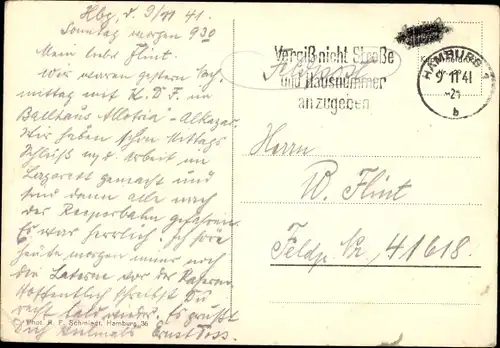 Hbg, d. 9/11 41.
Sonntag morgen 9 30
Mein liebe Flint.
Wir waren gestern Nach-
mittag mit K.D.F. im
Ballhaus Allotria - Alkazar.
Wir haben schon Mittags
Schluß m/d Arbeit im
Lazarett gemacht und
sind dann alle nach
der Reeperbahn gefahren.
Es war herrlich. Ich höre
heute morgen immer noch
der Laterne vor der Kaserne.
Hoffentlich schreibst Du
recht bald wieder. Es grüßt
Dich vielmals Ernst
Phot. R. F. Schmiedt, Hamburg 36
Vergiß nicht Straße
und Hausnummer
anzugeben
Feldpost
HAMBURG 1
9 11 41
-21
b
Herrn
W. Flint
Feldp. Nr. 41618.